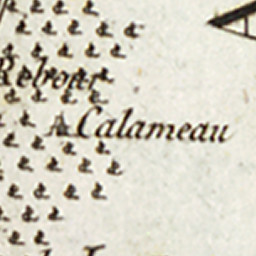 Rebour
Calameau